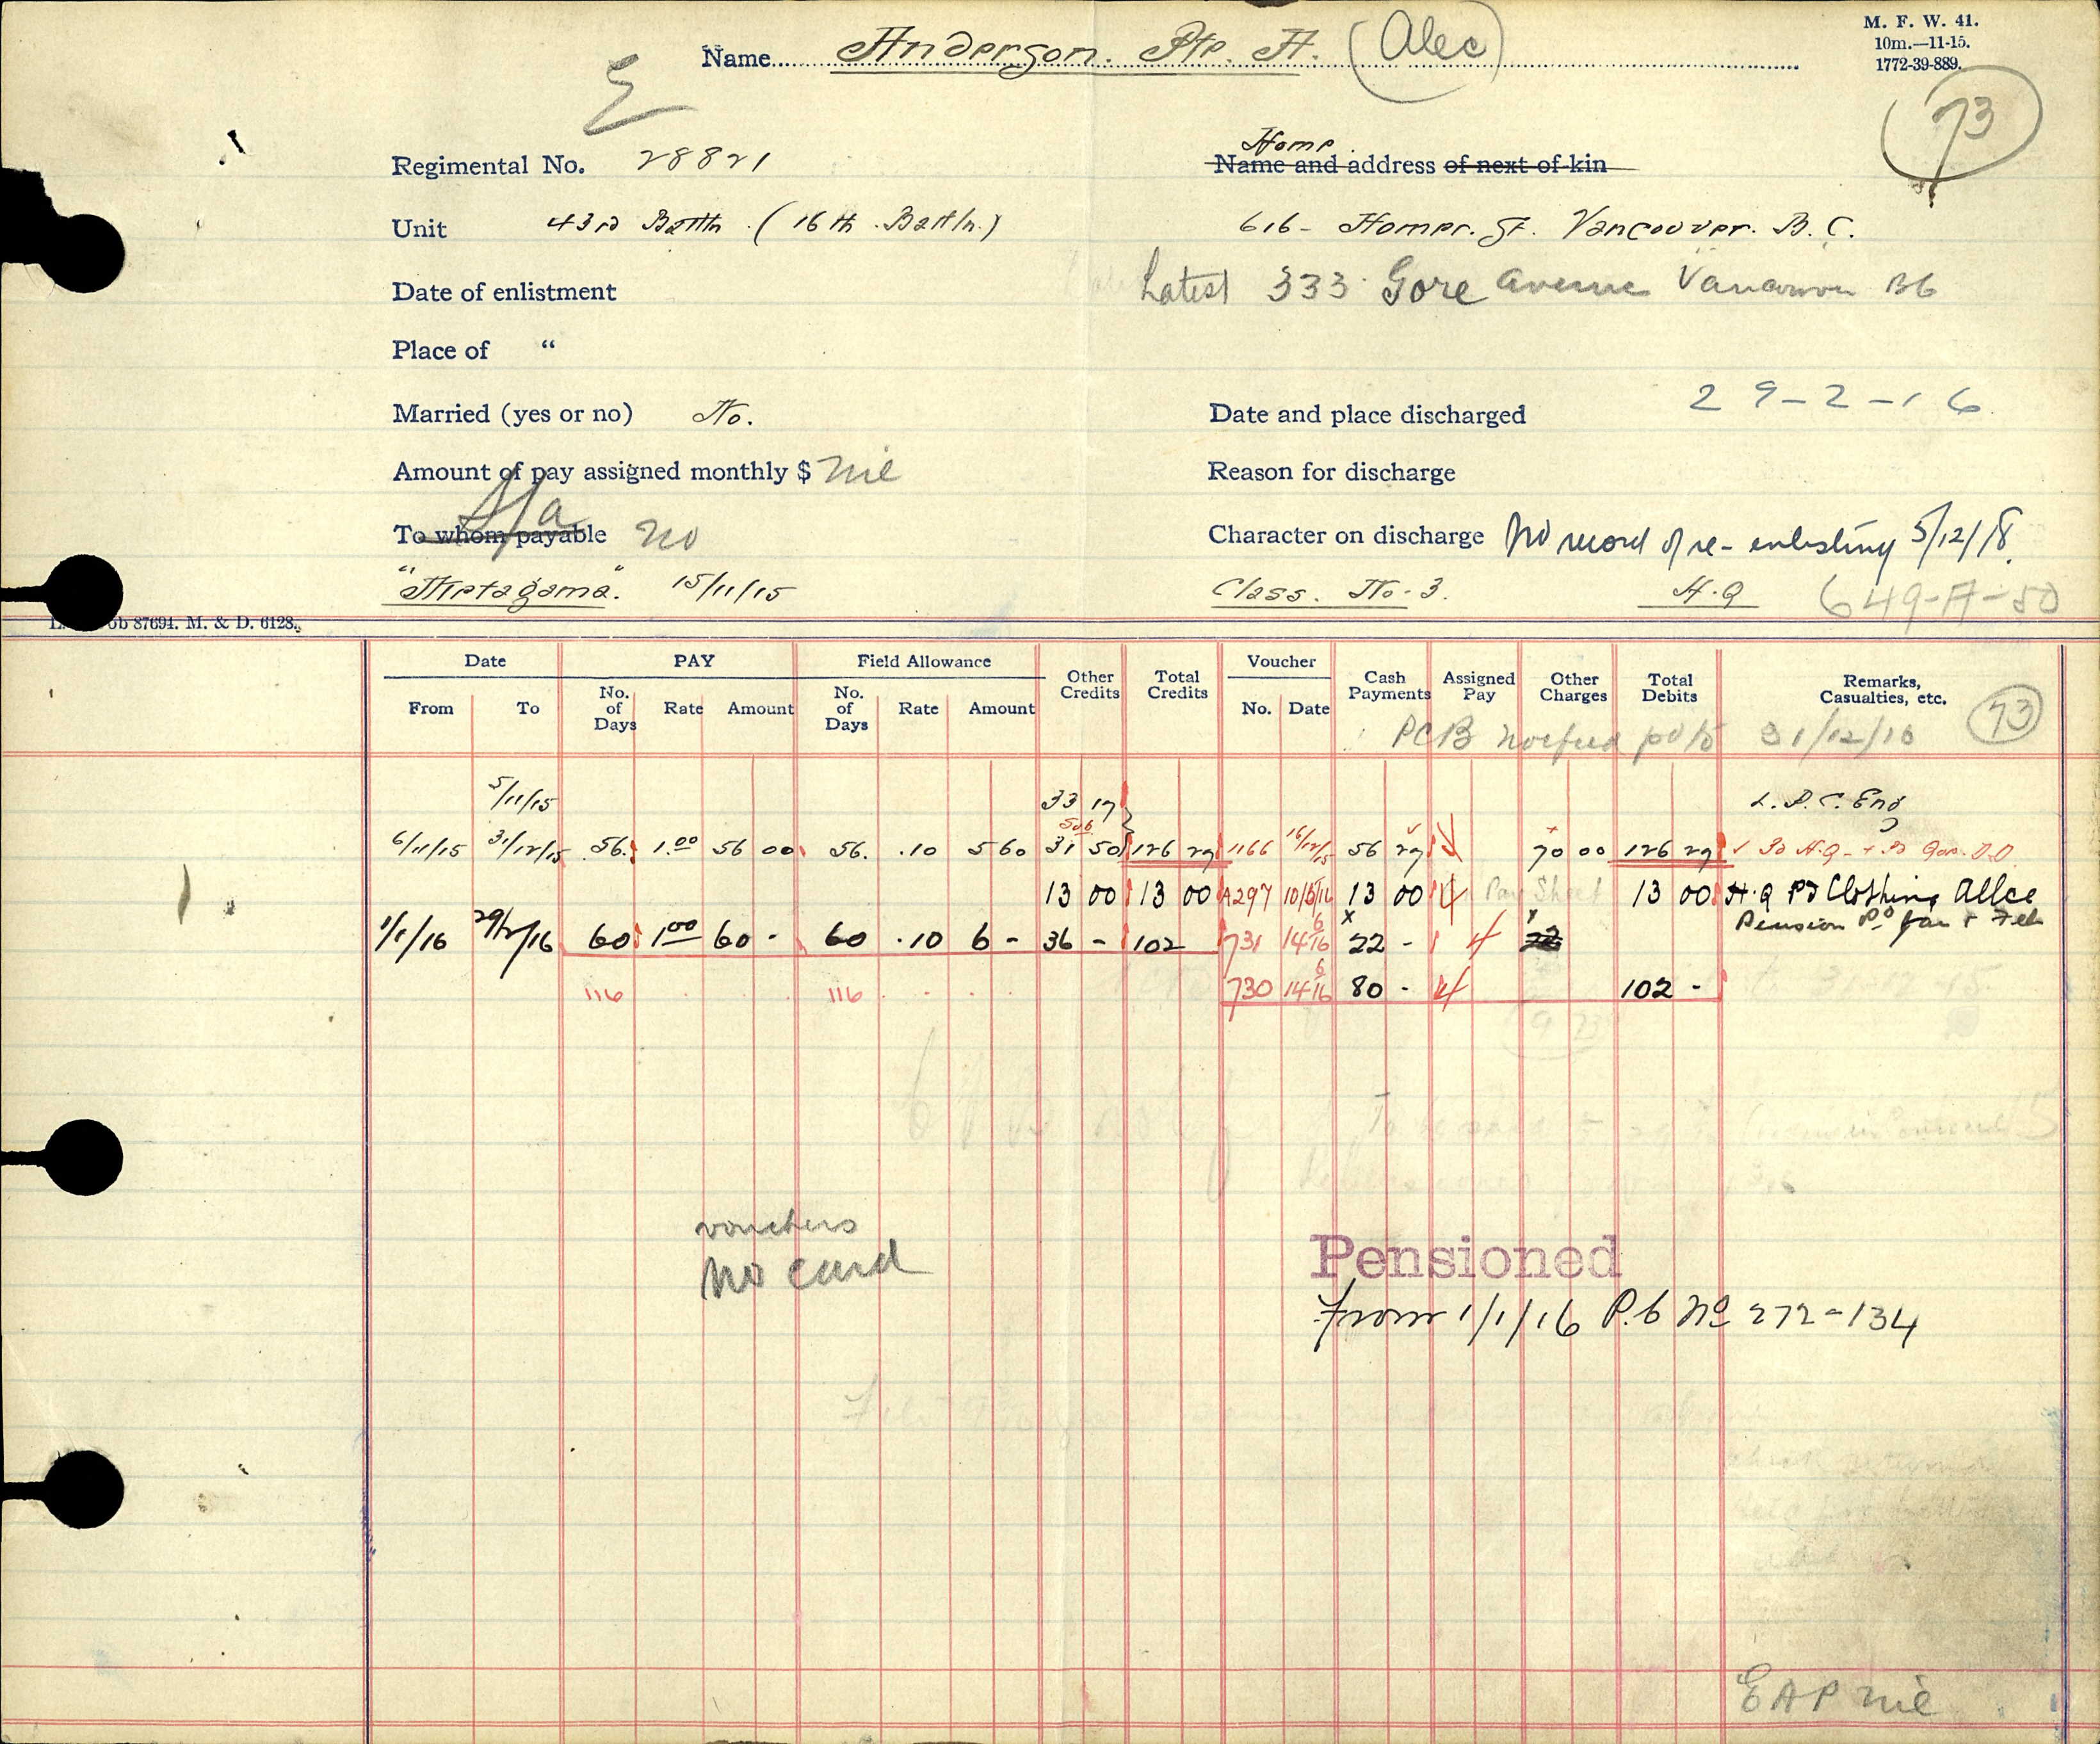 M. F. W. 41.
10m.—11-15.
1772-39-889.
Name Anderson. Pte. A. (Alec)
73
Regimental No. 28821
Home
Name and address of next of kin
Unit 43rd Battn (16th Battln.)
616 - Homer. St. Vancouver. B. C.
Date of enlistment
Latest 333 Gore Avenue Vancouver BC
Place of “
Married (yes or no) No.
Date and place discharged 29-2-16
Amount of pay assigned monthly $ Nil
Reason for discharge
To whom payable No
Character on discharge No record of re-enlisting 5/12/18.
"Metagama". 15/11/15
Class. No. 3. H.Q 649-A-50
Job 87694. M. & D. 6128.
Date PAY Field Allowance Other Credits Total Credits Voucher Cash Payments Assigned Pay Other Charges Total Debits Remarks, Casualties, etc.
From To No. of Days Rate Amount No. of Days Rate Amount No. Date
73
PCB 31/12/16
5/11/15 33 19 L. P. C. Eng
Sub
6/11/15 31/12/15 56. 1.00 56 00 56. .10 5 60 31 50 126 29 1166 16/12/15 56 29 70 00 126 29
13 00 13 00 A297 10/5/16 13 00 Pay Sheet 13 00 H.Q Pd Clothing Allce
1/1/16 29/2/16 60 1.00 60 - 60 .10 6 - 36 - 102 731 14/6/16 22 - 22 Pension Pd Jan + Feb
116 116 730 14/6/16 80 - 102 -
vouchers
No card
Pensioned
from 1/1/16 P.6 No 272-134
EAP Nil